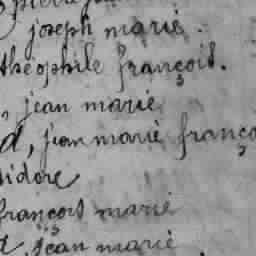 joseph marie.
théophile françois.
, jean marie
d, jean marie franço
sidore
françois marie
jean marie